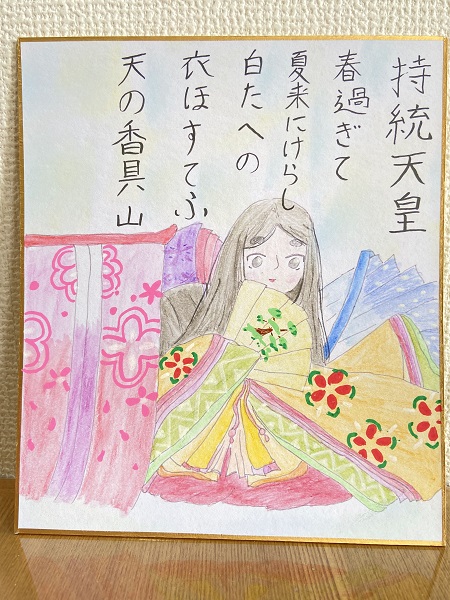 持統天皇
春過ぎて
夏来にけらし
白たへの
衣ほすてふ
天の香具山